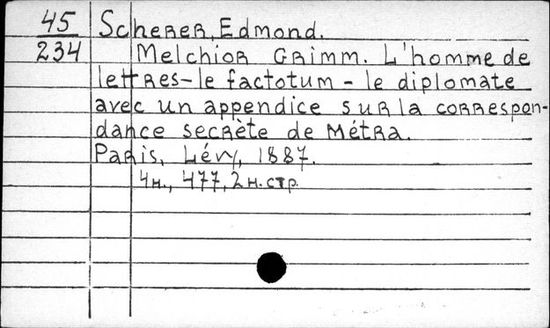 45
234
Scherer, Edmond.
Melchior Grimm. L'homme de
lettres-le factotum - le diplomate
avec un appendice sur la correspon-
dance secrète de Métra.
Paris, Lévy, 1887.
4н., 477, 2 н. стр.